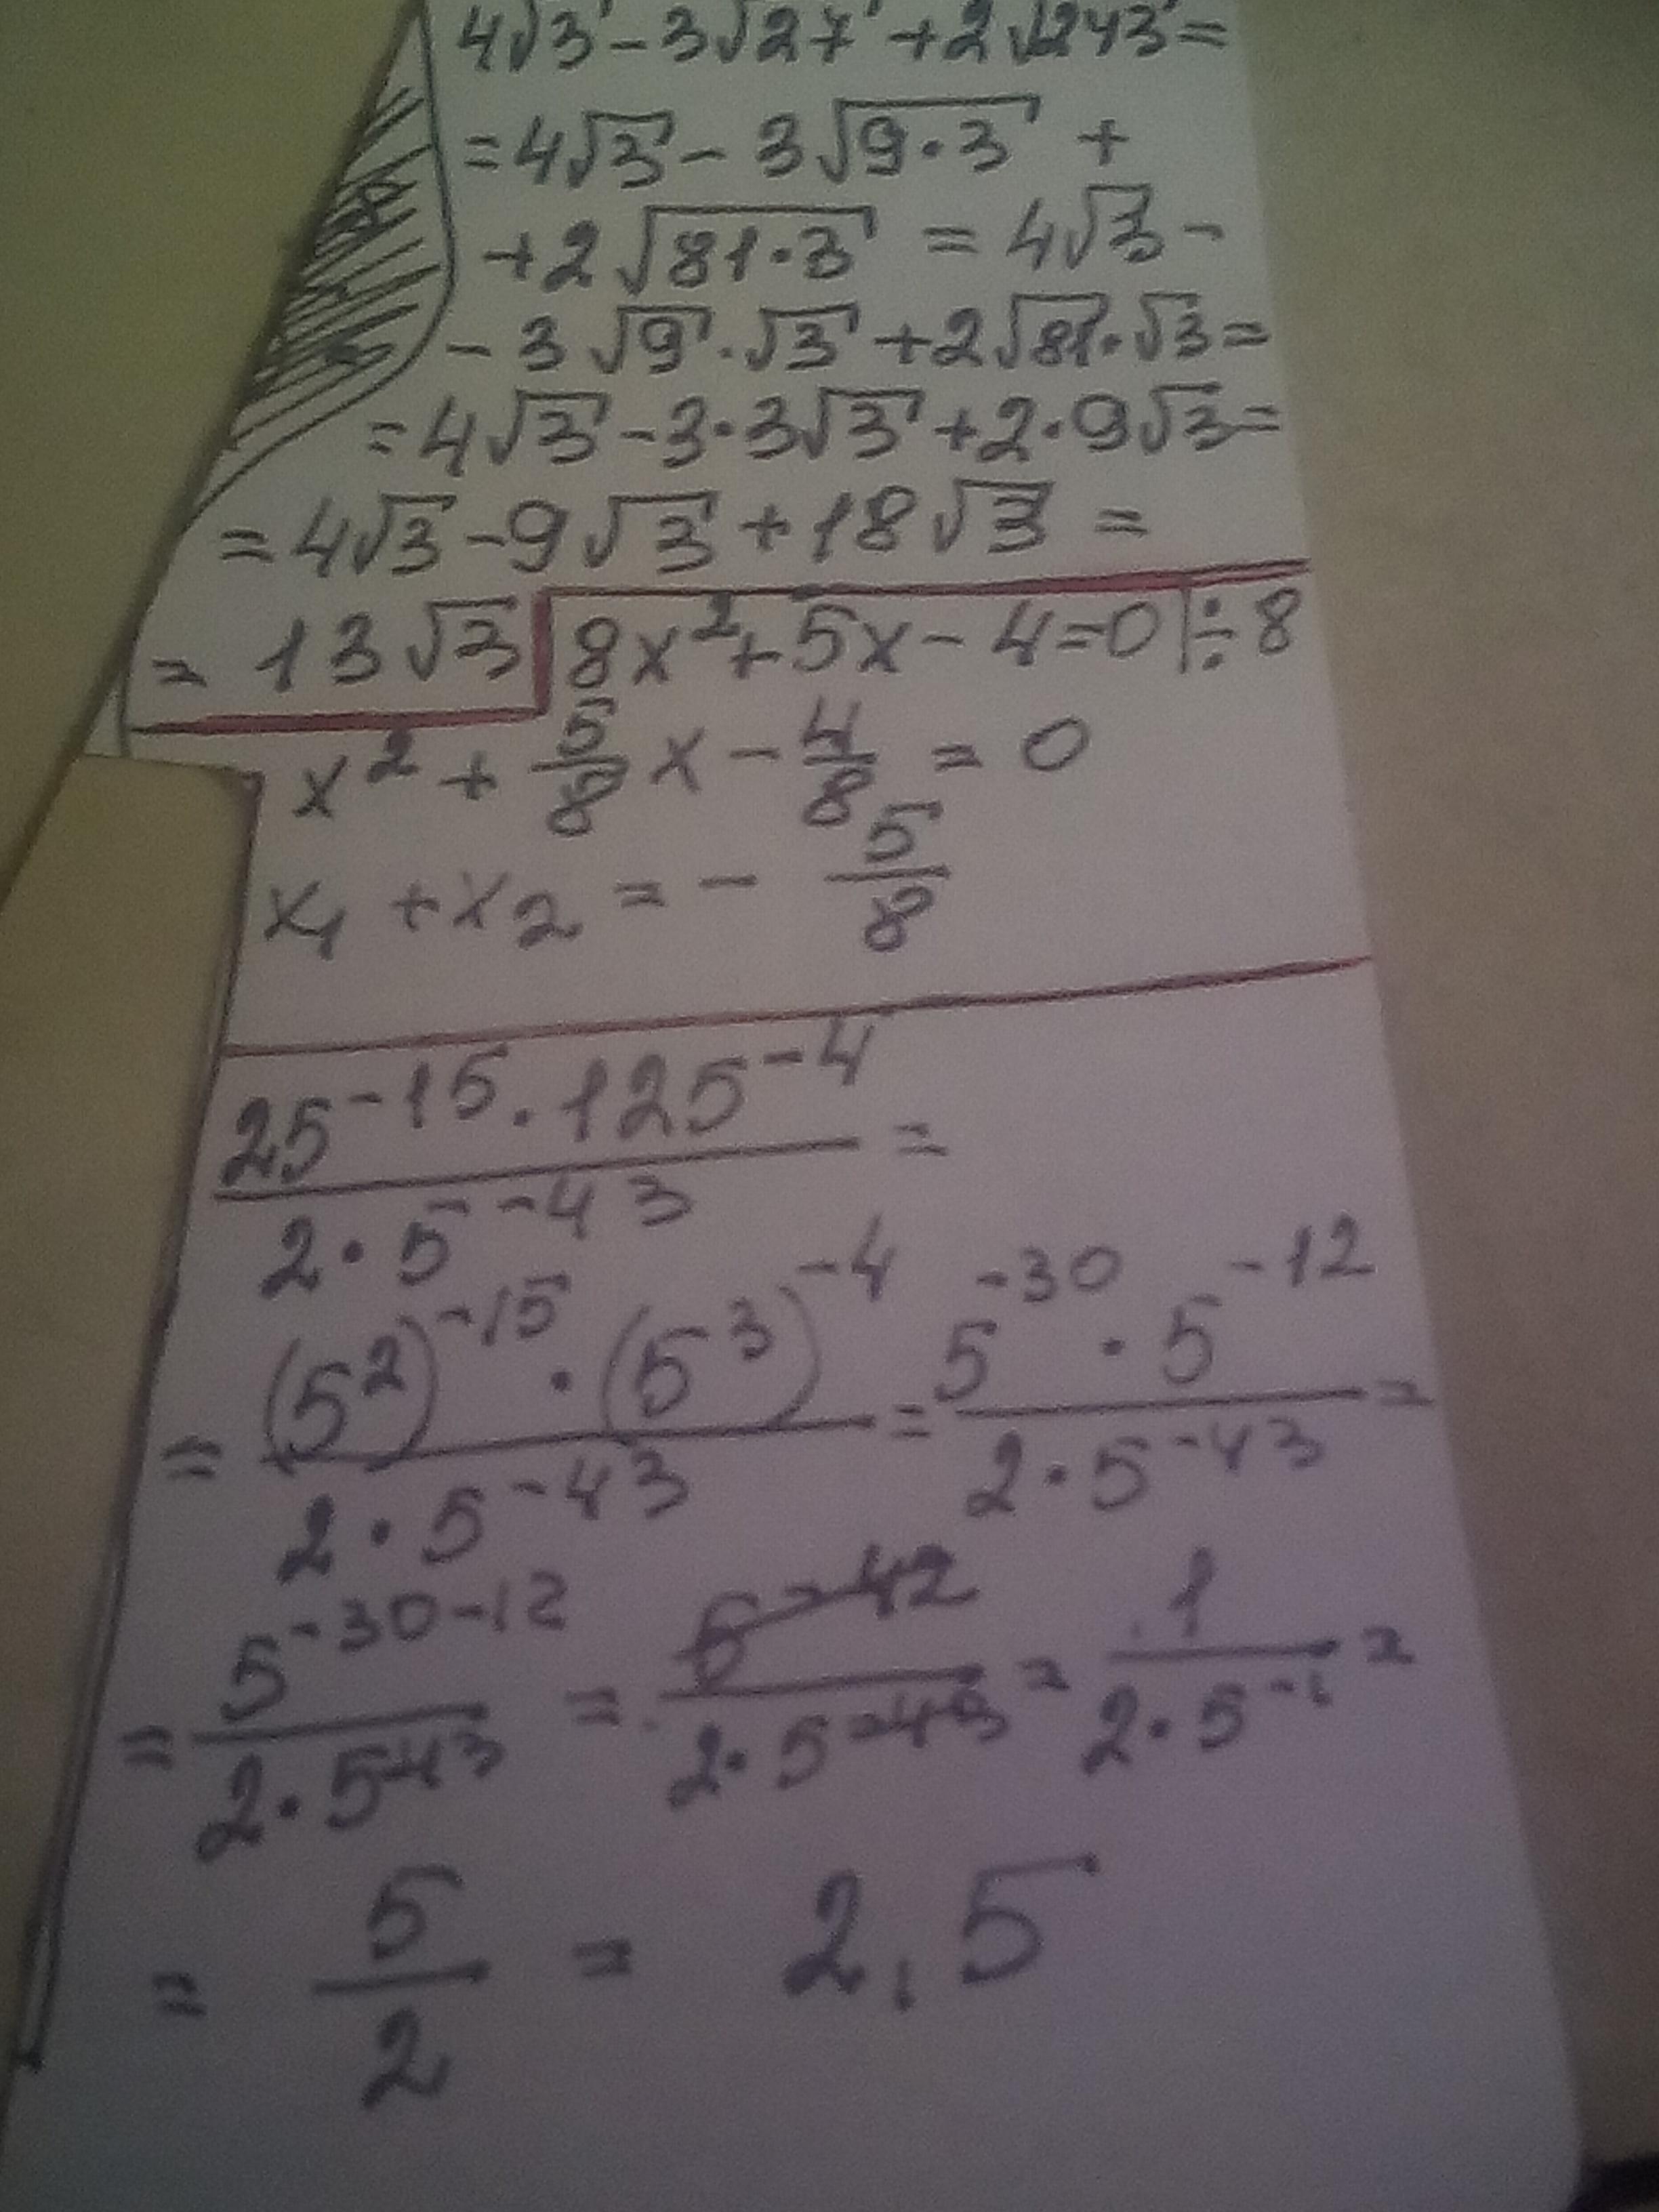 4√3 - 3√27 + 2√243 =
= 4√3 - 3√9·3 +
+ 2√81·3 = 4√3 -
- 3√9·√3 + 2√81·√3 =
= 4√3 - 3·3√3 + 2·9√3 =
= 4√3 - 9√3 + 18√3 =
= 13√3
8x² + 5x - 4 = 0 | ÷ 8
x² + 5/8 x - 4/8 = 0
x₁ + x₂ = - 5/8
25⁻¹⁵ · 125⁻⁴ / 2 · 5⁻⁴³ =
= (5²)⁻¹⁵ · (5³)⁻⁴ / 2 · 5⁻⁴³ = 5⁻³⁰ · 5⁻¹² / 2 · 5⁻⁴³ =
= 5⁻³⁰⁻¹² / 2 · 5⁻⁴³ = 5⁻⁴² / 2 · 5⁻⁴³ = 1 / 2 · 5⁻¹ =
= 5/2 = 2,5